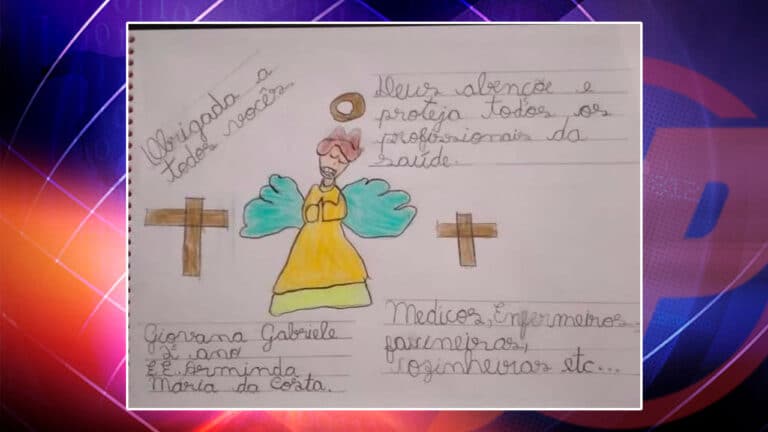 Obrigada a
todos vocês.
Deus abençõe e
proteja todos os
profissionais da
saúde.
Giovana Gabriele
2º ano
E.E. Arminda
Maria da Costa.
Medicos, Enfermeiros
faxineiras,
Cozinheiras etc...